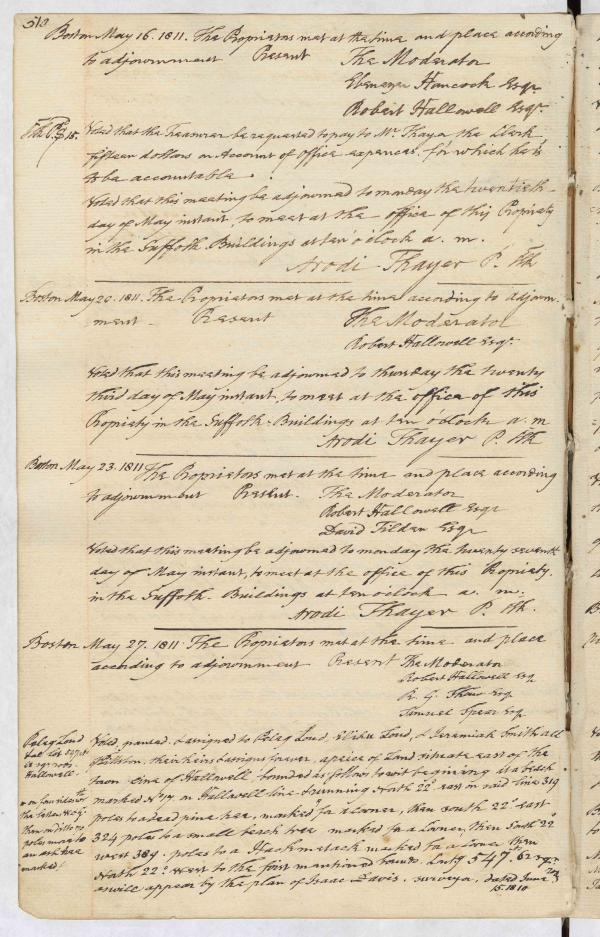 510
Boston May 16. 1811. The Proprietors met at the time and place according
to adjournment Present The Moderator
Ebenezer Hancock Esqr.
Robert Hallowell Esqr.
$15. Voted that the Treasurer be requested to pay to Mr. Thayer the Clerk
fifteen dollars on Account of Office expences. for which he is
to be accountable.
Voted that this meeting be adjourned to monday the twentieth
day of May instant, to meet at the office of this Propriety
in the Suffolk Buildings at ten o'clock a. m.
Arodi Thayer P. Clk
Boston May 20. 1811. The Proprietors met at the time according to adjourn-
ment Present The Moderator
Robert Hallowell Esqr.
Voted that this meeting be adjourned to thursday the twenty
third day of May instant, to meet at the office of this
Propriety in the Suffolk Buildings at ten o'clock a. m
Arodi Thayer P. Clk
Boston May 23. 1811 The Proprietors met at the time and place according
to adjournment Present. The Moderator
Robert Hallowell Esqr
David Tilden Esqr
Voted that this meeting be adjourned to monday the twenty seventh
day of May instant, to meet at the office of this Propriety.
in the Suffolk Buildings at ten o'clock a. m.
Arodi Thayer P. Clk.
Boston May 27. 1811. The Proprietors met at the time and place
according to adjournment Present The Moderator
Robert Hallowell Esq
R. G. Shaw Esq
Samuel Spear Esq
Peleg Loud
Hallowell
Voted, passed & assigned to Peleg Loud, Elihu Loud, & Jeremiah Smith all
of Pittston, their heirs & assigns forever, a piece of Land situate east of the
town line of Hallowell bounded as follows to wit begining at a birch
marked No 17, on Hallowell line & running North 22° east in said line 319
poles to a dead pine tree, marked for a corner, then south 22° east
324 poles to a small beach tree marked for a corner, then South 22°
west 389. poles to a Hackmetack marked for a corner then
North 22° West to the first mentioned bounds. 547. 62
as will appear by the plan of Isaac Davis. surveyor, dated June
15. 1810
on four sides of
the letter
then on ditto no
poles more to
an ash tree
marked